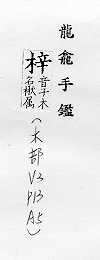 龍龕手鑑
梓音子木
名楸属
(木部V2P13A5)